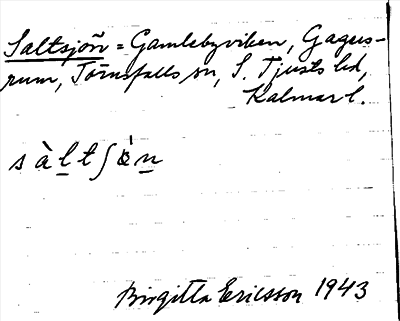 Saltsjön = Gamlebyviken, Gagers-
rum, Törnsfalls sn, S. Tjusts hd,
Kalmar l.
s à l t ʃ ö̀ n
Birgitta Ericsson 1943